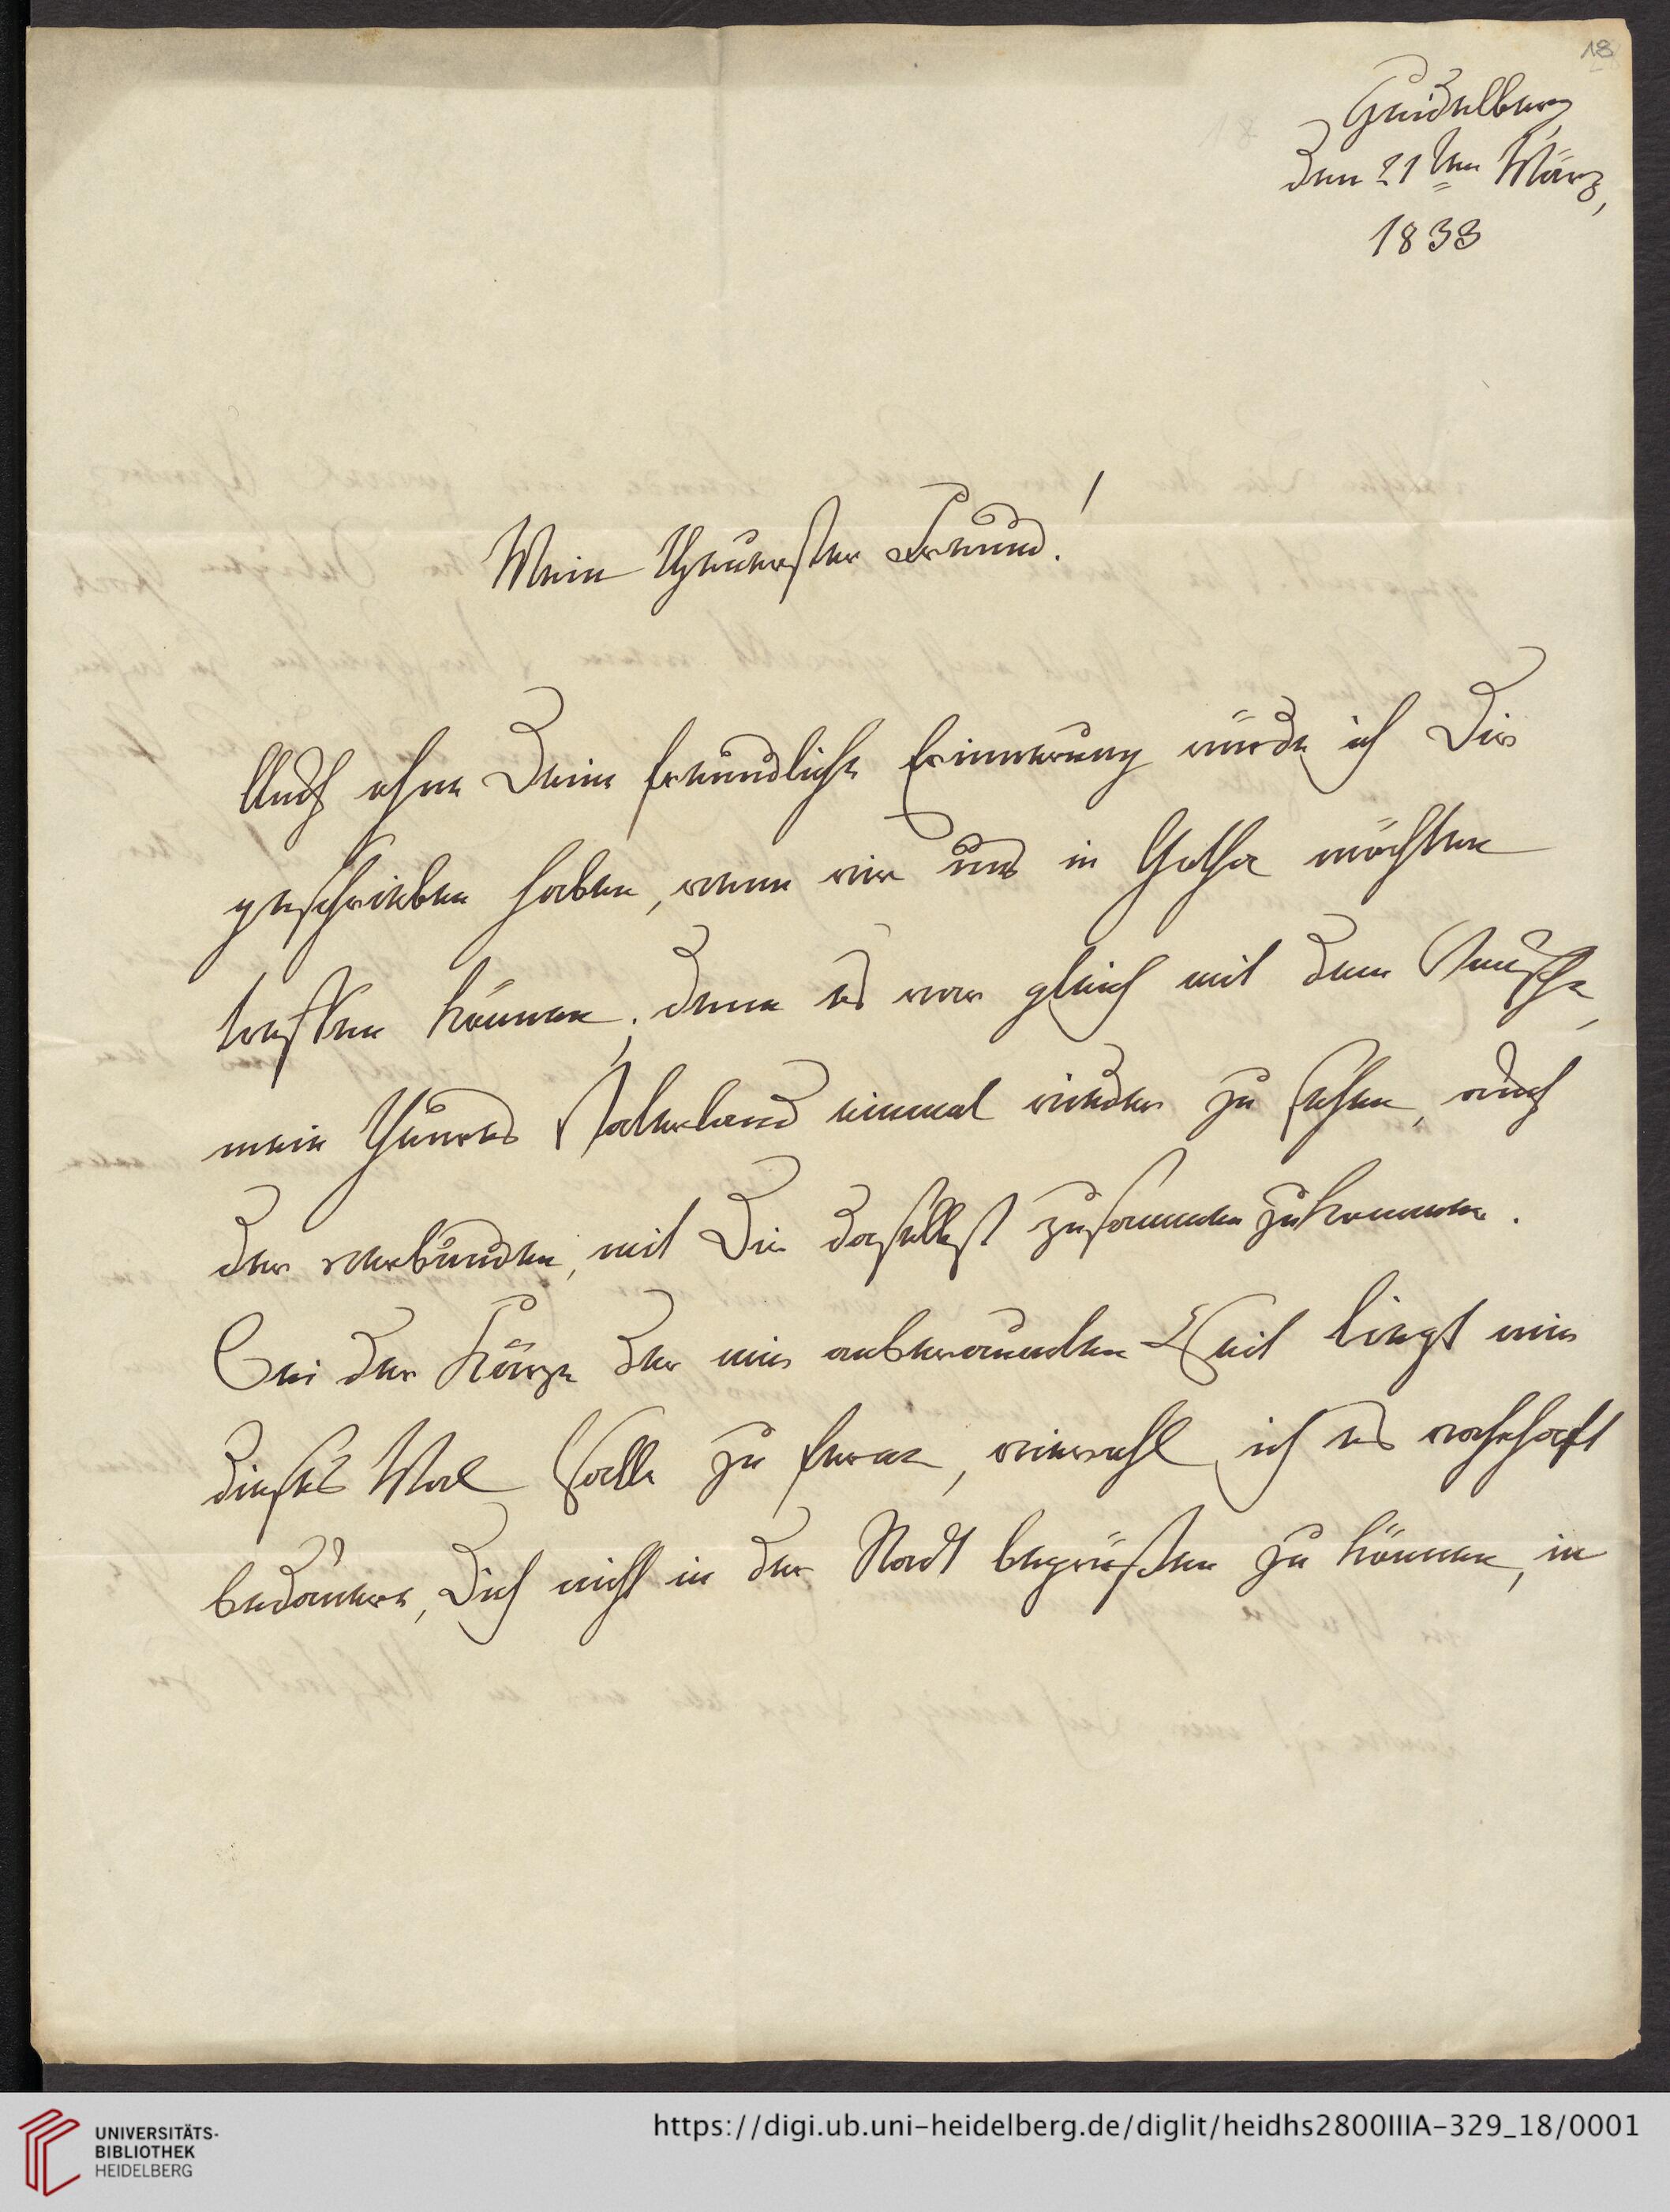 18
Heidelberg
den 21ten März,
1833
Mein theuerster Freund!
Auch ohne Deine freundliche Erinnerung würde ich Dir
geschrieben haben, wenn wir uns in Gotha möchten
treffen können; denn es war gleich mit dem Wunsche,
mein theures Vaterland einmal wieder zu sehen, auch
der verbunden, mit Dir daselbst zusammen zu kommen.
Bei der Kürze der mir anberaumten Zeit liegt mir
dieses Mal Halle zu ferne, wiewohl ich es wahrhaft
bedauere, Dich nicht in der Stadt begrüßen zu können, in
UNIVERSITÄTS-
BIBLIOTHEK
HEIDELBERG
https://digi.ub.uni-heidelberg.de/diglit/heidhs2800IIIA-329_18/0001